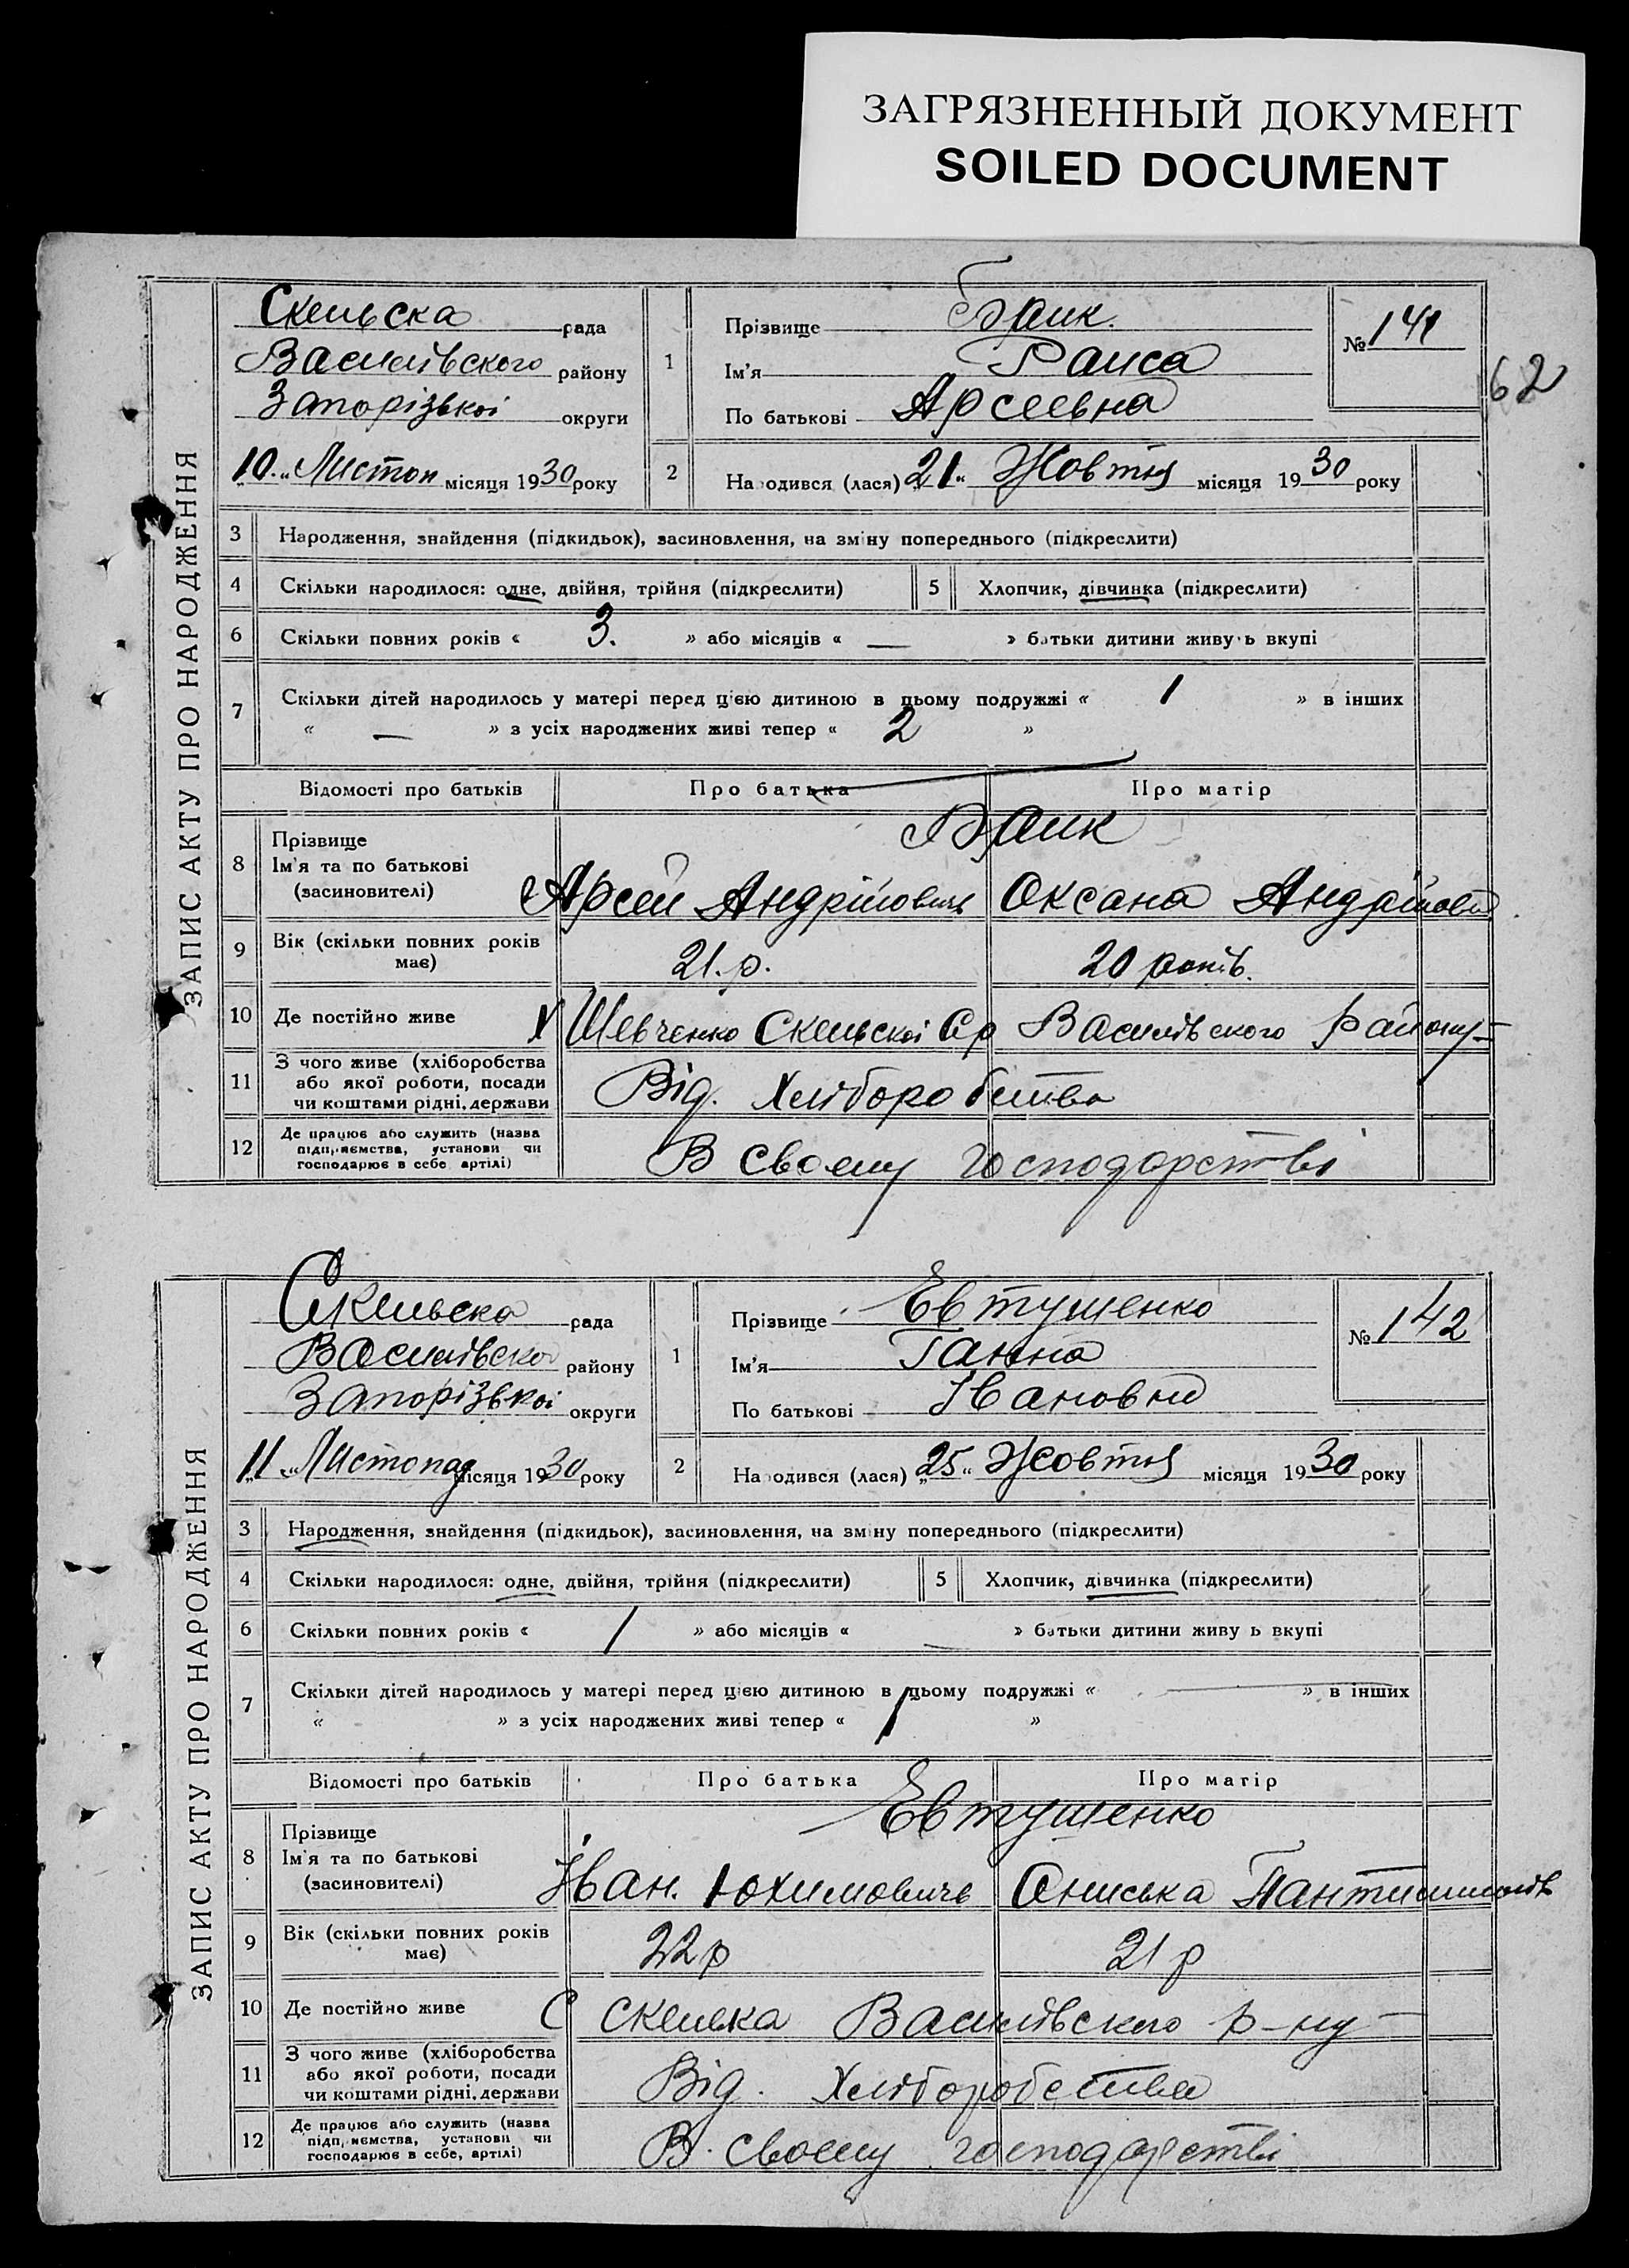 ЗАГРЯЗНЕННЫЙ ДОКУМЕНТ
SOILED DOCUMENT
62
ЗАПИС АКТУ ПРО НАРОДЖЕННЯ
Скельска рада
Василівского району
Запорізькоі округи
„10.“ Листоп місяця 1930 року
1
Прізвище Браик.
Ім'я Раиса
По батькові Арсеевна
№ 141
2 Народився (лася) „21“ Жовтня місяця 1930 року
3 Народження, знайдення (підкидьок), засиновлення, на зміну попереднього (підкреслити)
4 Скільки народилося: одне, двійня, трійня (підкреслити) 5 Хлопчик, дівчинка (підкреслити)
6 Скільки повних років « 3. » або місяців « — » батьки дитини живуть вкупі
7 Скільки дітей народилось у матері перед цією дитиною в цьому подружжі « 1 » в інших
« — » з усіх народжених живі тепер « 2 »
Відомості про батьків Про батька Про матір
8 Прізвище
Ім'я та по батькові
(засиновителі)
Браик
Арсей Андрійович Оксана Андрійов
9 Вік (скільки повних років
має)
21.р. 20 років.
10 Де постійно живе Х Шевченко Скельскоі С/р Василівского району
11 З чого живе (хліборобства
або якої роботи, посади
чи коштами рідні, держави
Від. Хліборобства
12 Де працює або служить (назва
підприємства, установи чи
господарює в себе артілі)
В своему господарстві
ЗАПИС АКТУ ПРО НАРОДЖЕННЯ
Скельска рада
Василівског району
Запорізькоі округи
„11“ Листопад місяця 1930 року
1
Прізвище Евтушенко
Ім'я Ганна
По батькові Івановна
№ 142
2 Народився (лася) „25“ Жовтня місяця 1930 року
3 Народження, знайдення (підкидьок), засиновлення, на зміну попереднього (підкреслити)
4 Скільки народилося: одне, двійня, трійня (підкреслити) 5 Хлопчик, дівчинка (підкреслити)
6 Скільки повних років « 1 » або місяців « — » батьки дитини живуть вкупі
7 Скільки дітей народилось у матері перед цією дитиною в цьому подружжі « — » в інших
« » з усіх народжених живі тепер « 1 »
Відомості про батьків Про батька Про матір
8 Прізвище
Ім'я та по батькові
(засиновителі)
Евтушенко
Іван. Юхимович Ониська
9 Вік (скільки повних років
має)
22р 21р
10 Де постійно живе С Скелька Василівского р-ну
11 З чого живе (хліборобства
або якої роботи, посади
чи коштами рідні, держави
Від. Хліборобства
12 Де працює або служить (назва
підприємства, установи чи
господарює в себе, артілі)
В. своему господарстві